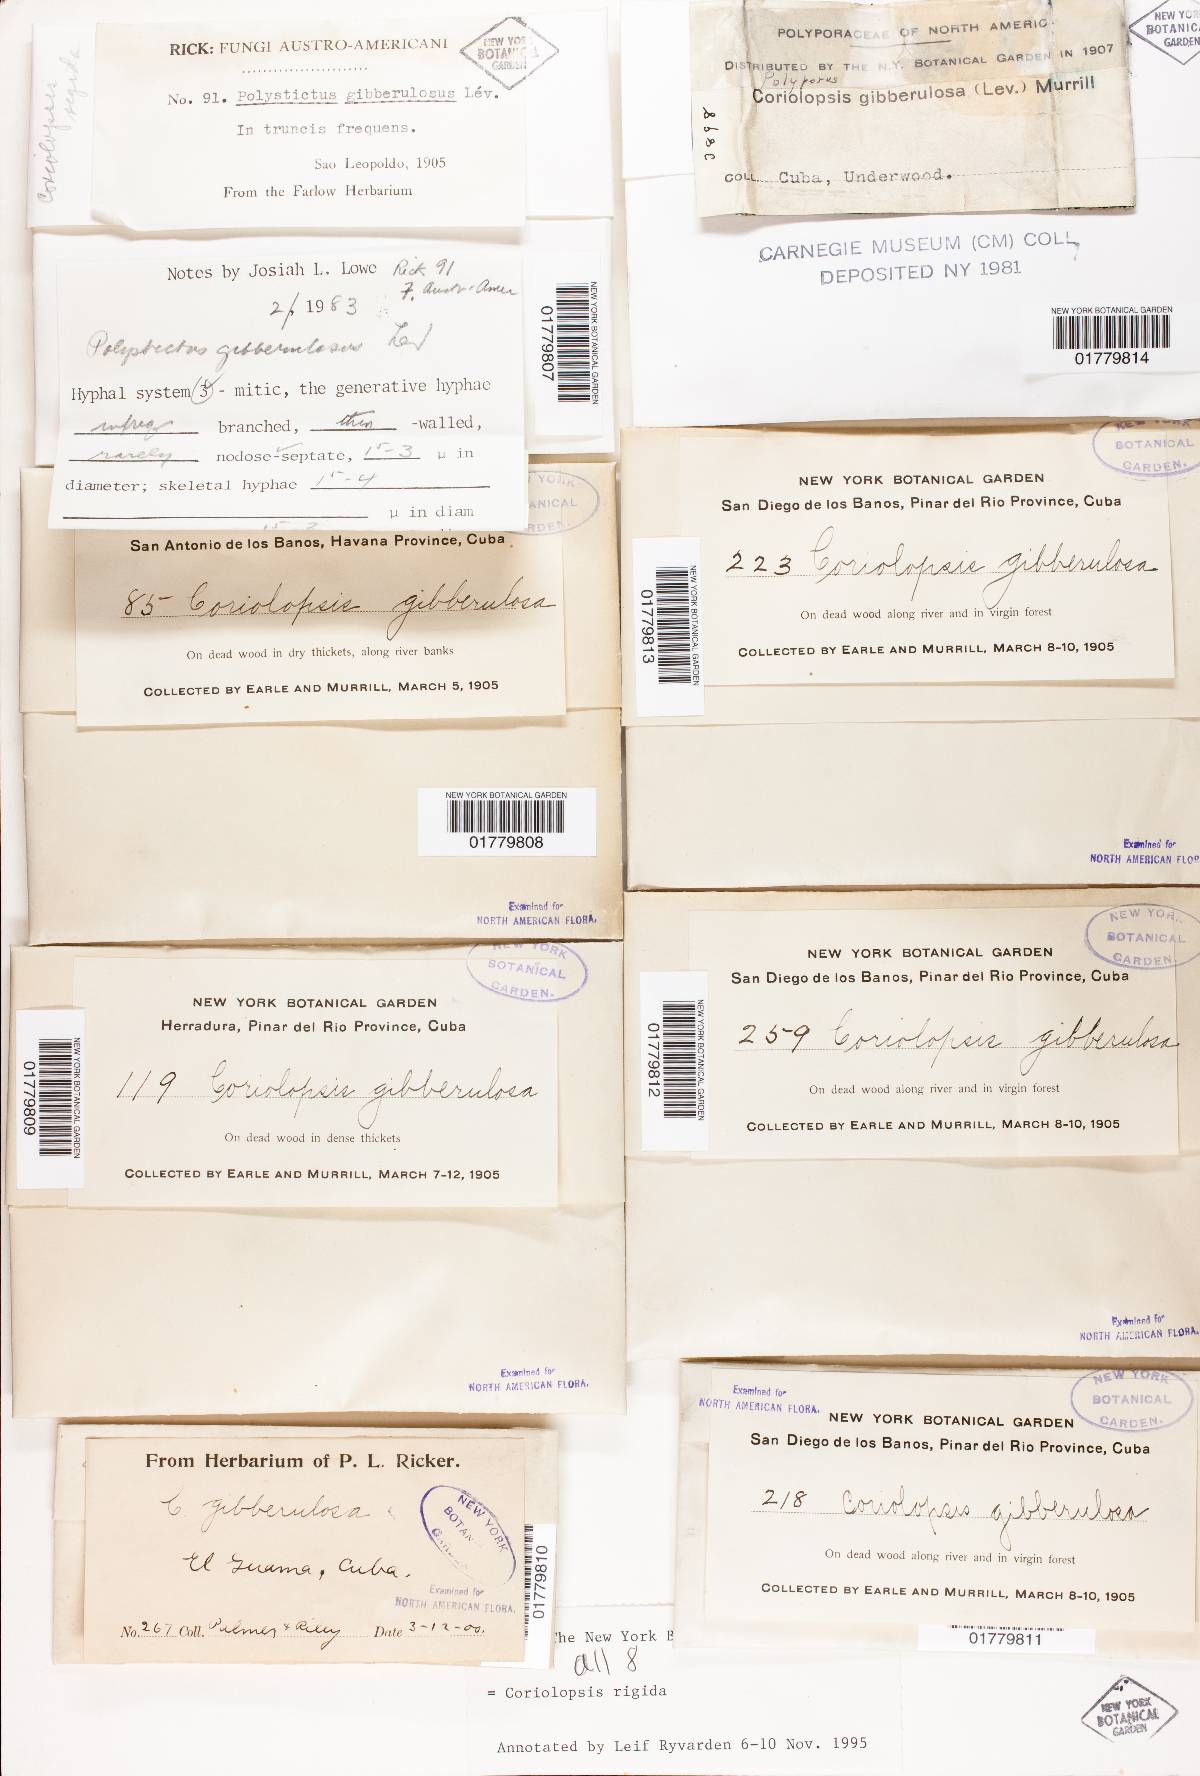 Coriolopsis
rigida
RICK: FUNGI AUSTRO-AMERICANI
No. 91. Polystictus gibberulosus Lév.
In truncis frequens.
Sao Leopoldo, 1905
From the Farlow Herbarium
NEW YORK
BOTANICAL
GARDEN
Notes by Josiah L. Lowe Rick 91
F. Austr-Amer
2/ 1983
Polystictus gibberulosus Lev
Hyphal system 3 - mitic, the generative hyphae
infreq branched, thin -walled,
rarely nodose-septate, 15-3 µ in
diameter; skeletal hyphae 15-4
µ in diam
NEW YORK BOTANICAL GARDEN
01779807
San Antonio de los Banos, Havana Province, Cuba
85 Coriolopsis gibberulosa
On dead wood in dry thickets, along river banks
COLLECTED BY EARLE AND MURRILL, MARCH 5, 1905
NEW YORK BOTANICAL GARDEN
01779808
Examined for
NORTH AMERICAN FLORA.
NEW YORK
BOTANICAL
GARDEN.
NEW YORK BOTANICAL GARDEN
Herradura, Pinar del Rio Province, Cuba
119 Coriolopsis gibberulosa
On dead wood in dense thickets
COLLECTED BY EARLE AND MURRILL, MARCH 7-12, 1905
NEW YORK BOTANICAL GARDEN
01779809
Examined for
NORTH AMERICAN FLORA.
From Herbarium of P. L. Ricker.
C gibberulosa
El Guama, Cuba.
Examined for
NORTH AMERICAN FLORA.
No. 267 Coll. Palmer & Riley Date 3-12-00.
NEW YORK
BOTAN
01779810
The New York B
all 8
= Coriolopsis rigida
Annotated by Leif Ryvarden 6-10 Nov. 1995
POLYPORACEAE OF NORTH AMERIC
DISTRIBUTED BY THE N.Y. BOTANICAL GARDEN IN 1907
Polyporus
Coriolopsis gibberulosa (Lev.) Murrill
COLL. Cuba, Underwood.
NEW YORK
BOTANICAL
GARDEN
CARNEGIE MUSEUM (CM) COLL,
DEPOSITED NY 1981
NEW YORK BOTANICAL GARDEN
01779814
NEW YORK
BOTANICAL
GARDEN.
NEW YORK BOTANICAL GARDEN
San Diego de los Banos, Pinar del Rio Province, Cuba
223 Coriolopsis gibberulosa
On dead wood along river and in virgin forest
COLLECTED BY EARLE AND MURRILL, MARCH 8-10, 1905
NEW YORK BOTANICAL GARDEN
01779813
Examined for
NORTH AMERICAN FLOR
NEW YOR
BOTANICAL
GARDEN.
NEW YORK BOTANICAL GARDEN
San Diego de los Banos, Pinar del Rio Province, Cuba
259 Coriolopsis gibberulosa
On dead wood along river and in virgin forest
COLLECTED BY EARLE AND MURRILL, MARCH 8-10, 1905
NEW YORK BOTANICAL GARDEN
01779812
Examined for
NORTH AMERICAN FLORA.
Examined for
NORTH AMERICAN FLORA.
NEW YORK
BOTANICAL
GARDEN.
NEW YORK BOTANICAL GARDEN
San Diego de los Banos, Pinar del Rio Province, Cuba
218 Coriolopsis gibberulosa
On dead wood along river and in virgin forest
COLLECTED BY EARLE AND MURRILL, MARCH 8-10, 1905
01779811
NEW YORK
BOTANICAL
GARDEN